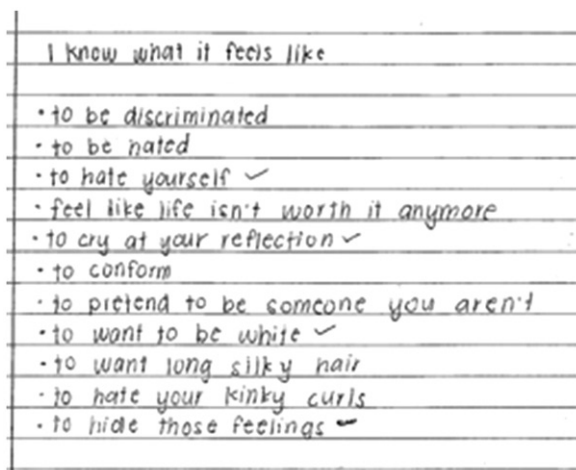 I know what it feels like
• to be discriminated
• to be hated
• to hate yourself ✓
• feel like life isn't worth it anymore
• to cry at your reflection ✓
• to conform
• to pretend to be someone you aren't
• to want to be white ✓
• to want long silky hair
• to hate your kinky curls
• to hide those feelings ✓